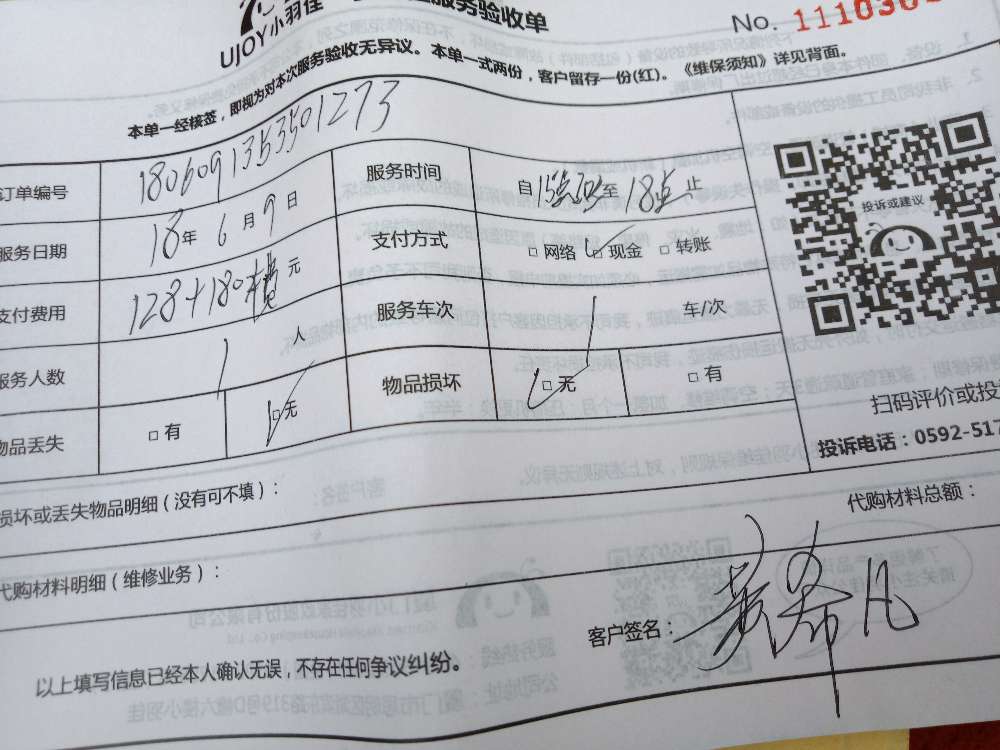 UJOY小羽佳 服务验收单
No. 111030
本单一经核签，即视为对本次服务验收无异议。本单一式两份，客户留存一份(红)。《维保须知》详见背面。
订单编号 1806091353501273
服务时间 自15点 至18点 止
服务日期 18年6月9日
支付方式 □网络 ☑现金 □转账
支付费用 128+180 元
服务车次 1 车/次
服务人数 1 人
物品损坏 ☑无 □有
物品丢失 □有 ☑无
投诉或建议
扫码评价或投
投诉电话：0592-517
损坏或丢失物品明细（没有可不填）：
代购材料总额：
代购材料明细（维修业务）：
客户签名：黄希凡
以上填写信息已经本人确认无误，不存在任何争议纠纷。